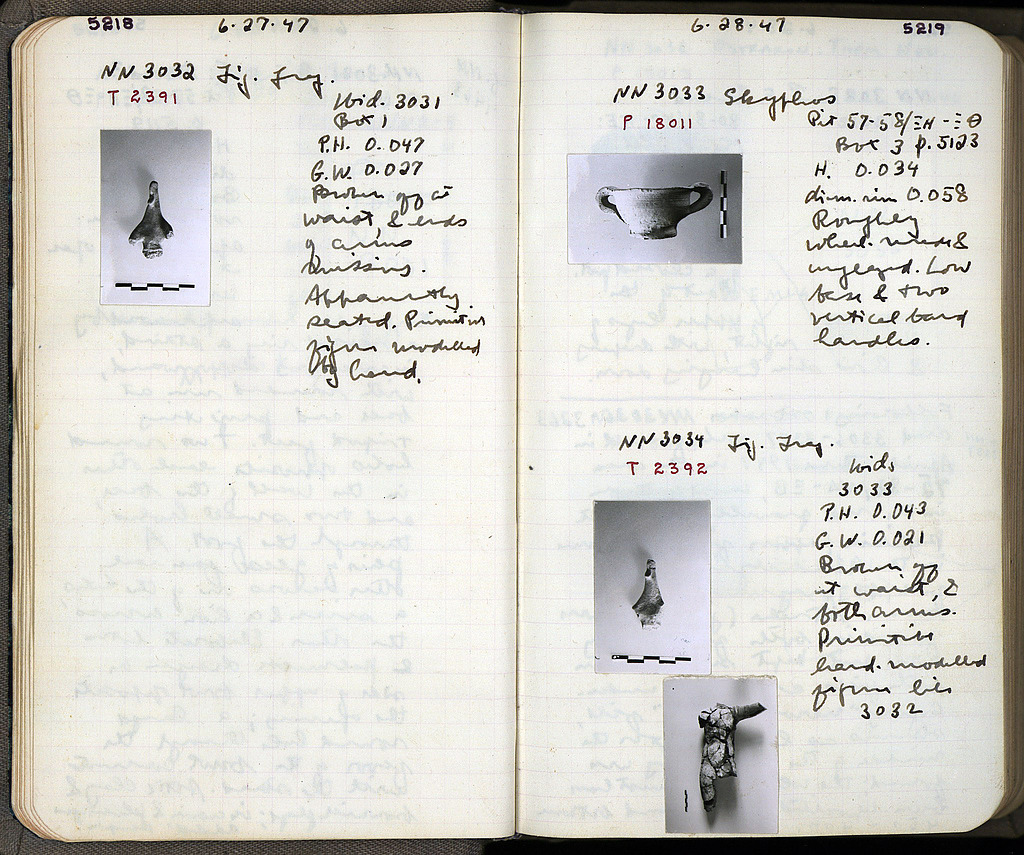 5218
6·27·47
NN 3032 Fig. Frag.
T 2391
Ibid. 3031
Box 1
P.H. 0.047
G.W. 0.027
Broken off at
waist, & ends
of arms
missing.
Apparently
seated. Primitive
figure modelled
by hand.
6·28·47
5219
NN 3033 Skyphos
P 18011
Pit 57-58/ΞΗ-ΞΘ
Box 3 p. 5123
H. 0.034
diam. rim 0.058
Roughly
wheel-made &
unglazed. Low
base & two
vertical band
handles.
NN 3034 Fig. Frag.
T 2392
Ibid
3033
P.H. 0.043
G.W. 0.021
Broken off
at waist, &
both arms.
Primitive
hand-modelled
figure like
3032